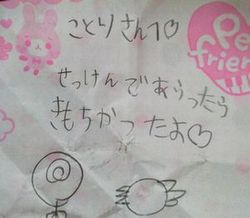 ことりさんへ♡
Pet
friend
せっけんであらったら
きもちかつたよ♡